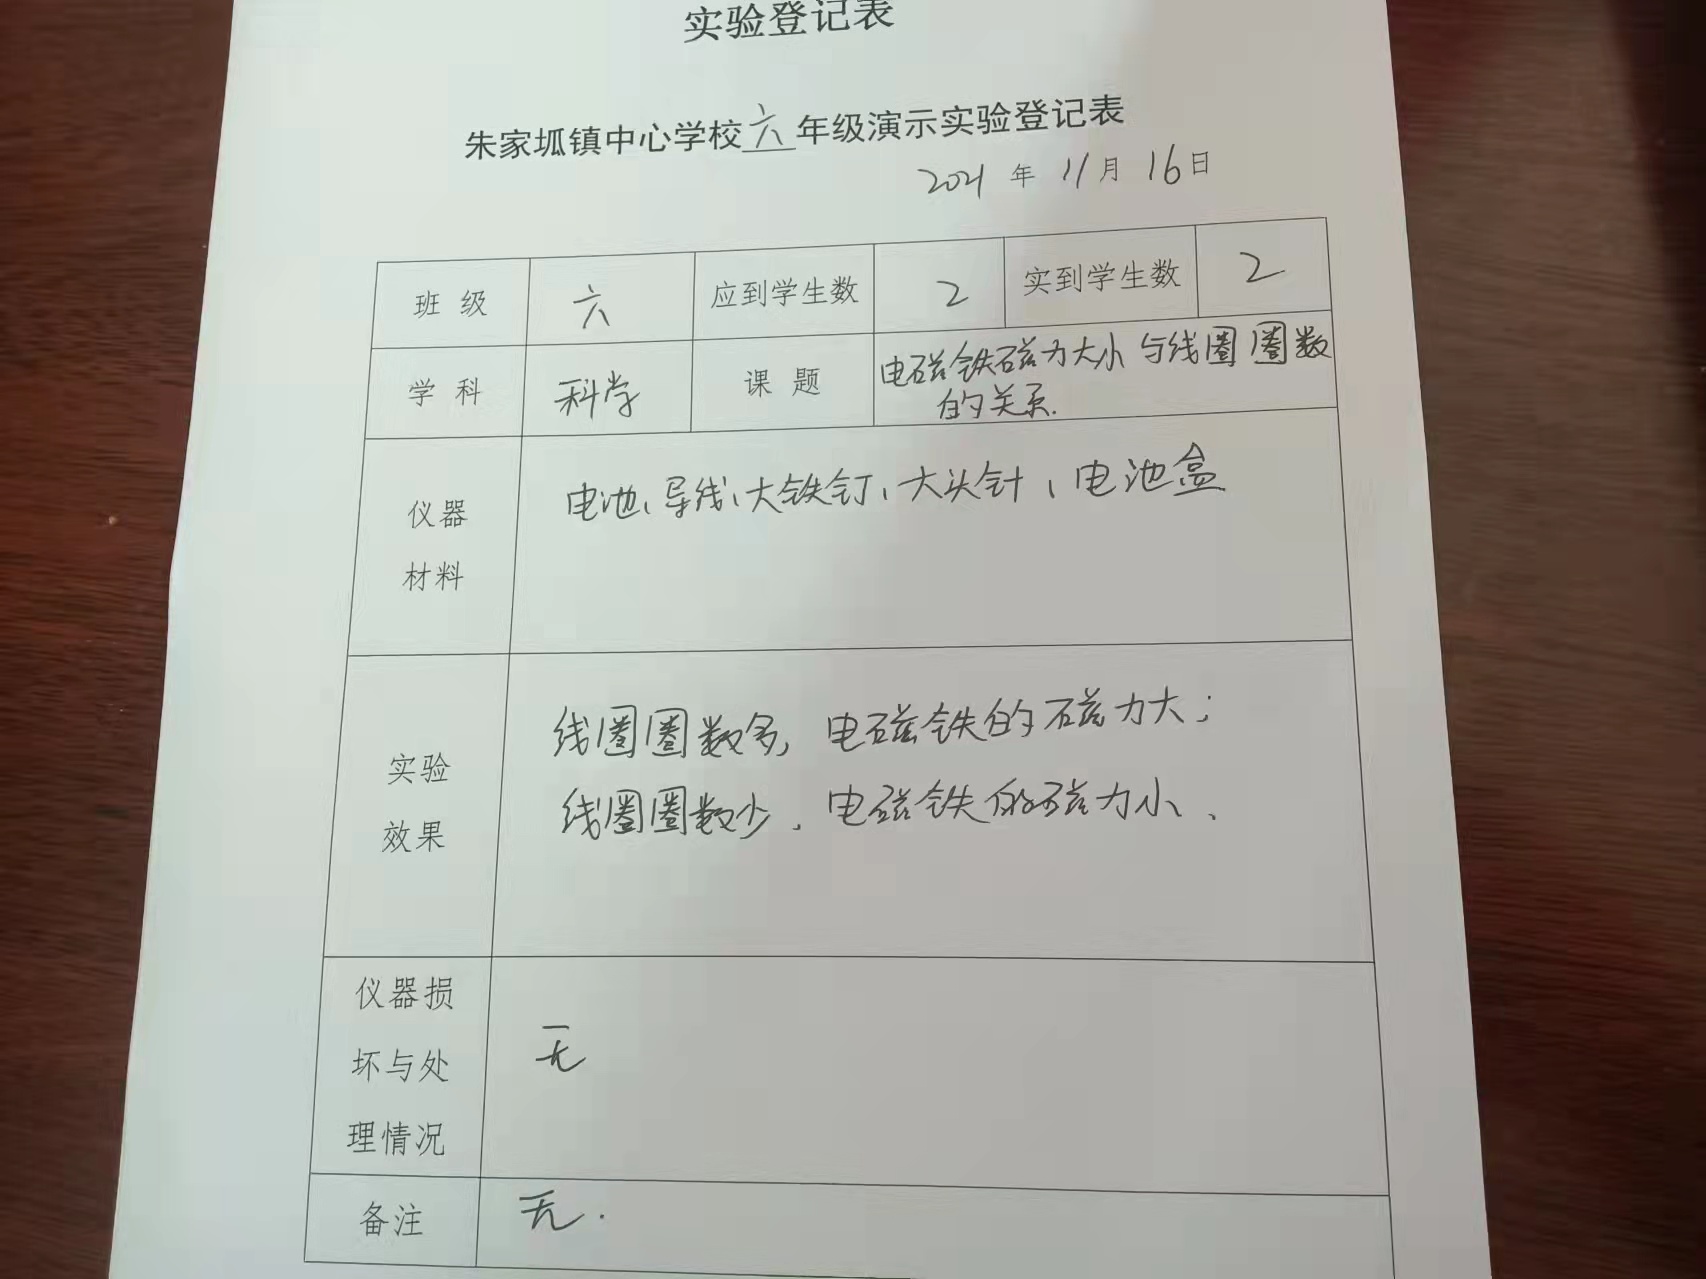 实验登记表
朱家坬镇中心学校六年级演示实验登记表
2021年11月16日
班级 六 应到学生数 2 实到学生数 2
学科 科学 课题 电磁铁磁力大小与线圈圈数
的关系.
仪器 电池、导线、大铁钉、大头针、电池盒
材料
线圈圈数多,电磁铁的磁力大;
实验 线圈圈数少,电磁铁的磁力小、
效果
仪器损
坏与处 无
理情况
备注 无.